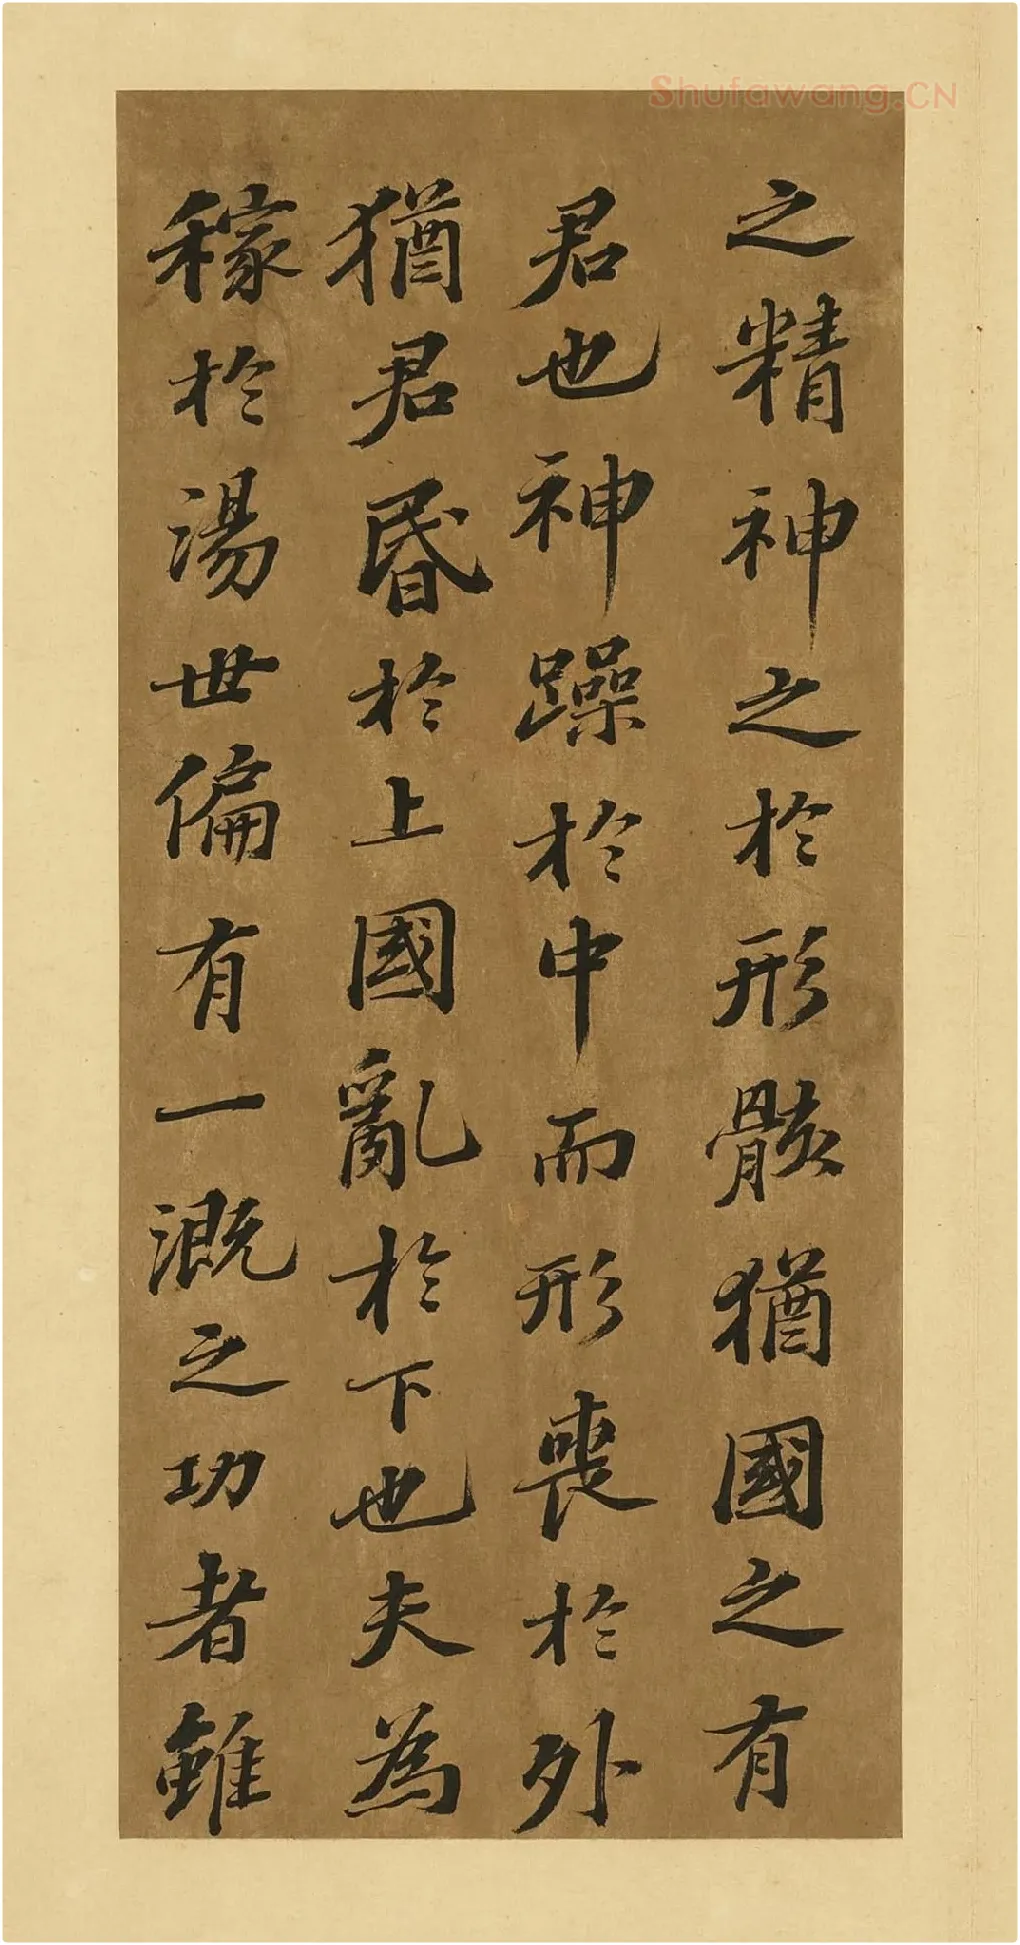 之精神之於形骸猶國之有
君也神躁於中而形喪於外
猶君昬於上國亂於下也夫為
稼於湯世偏有一溉之功者雖
Shufawang.CN